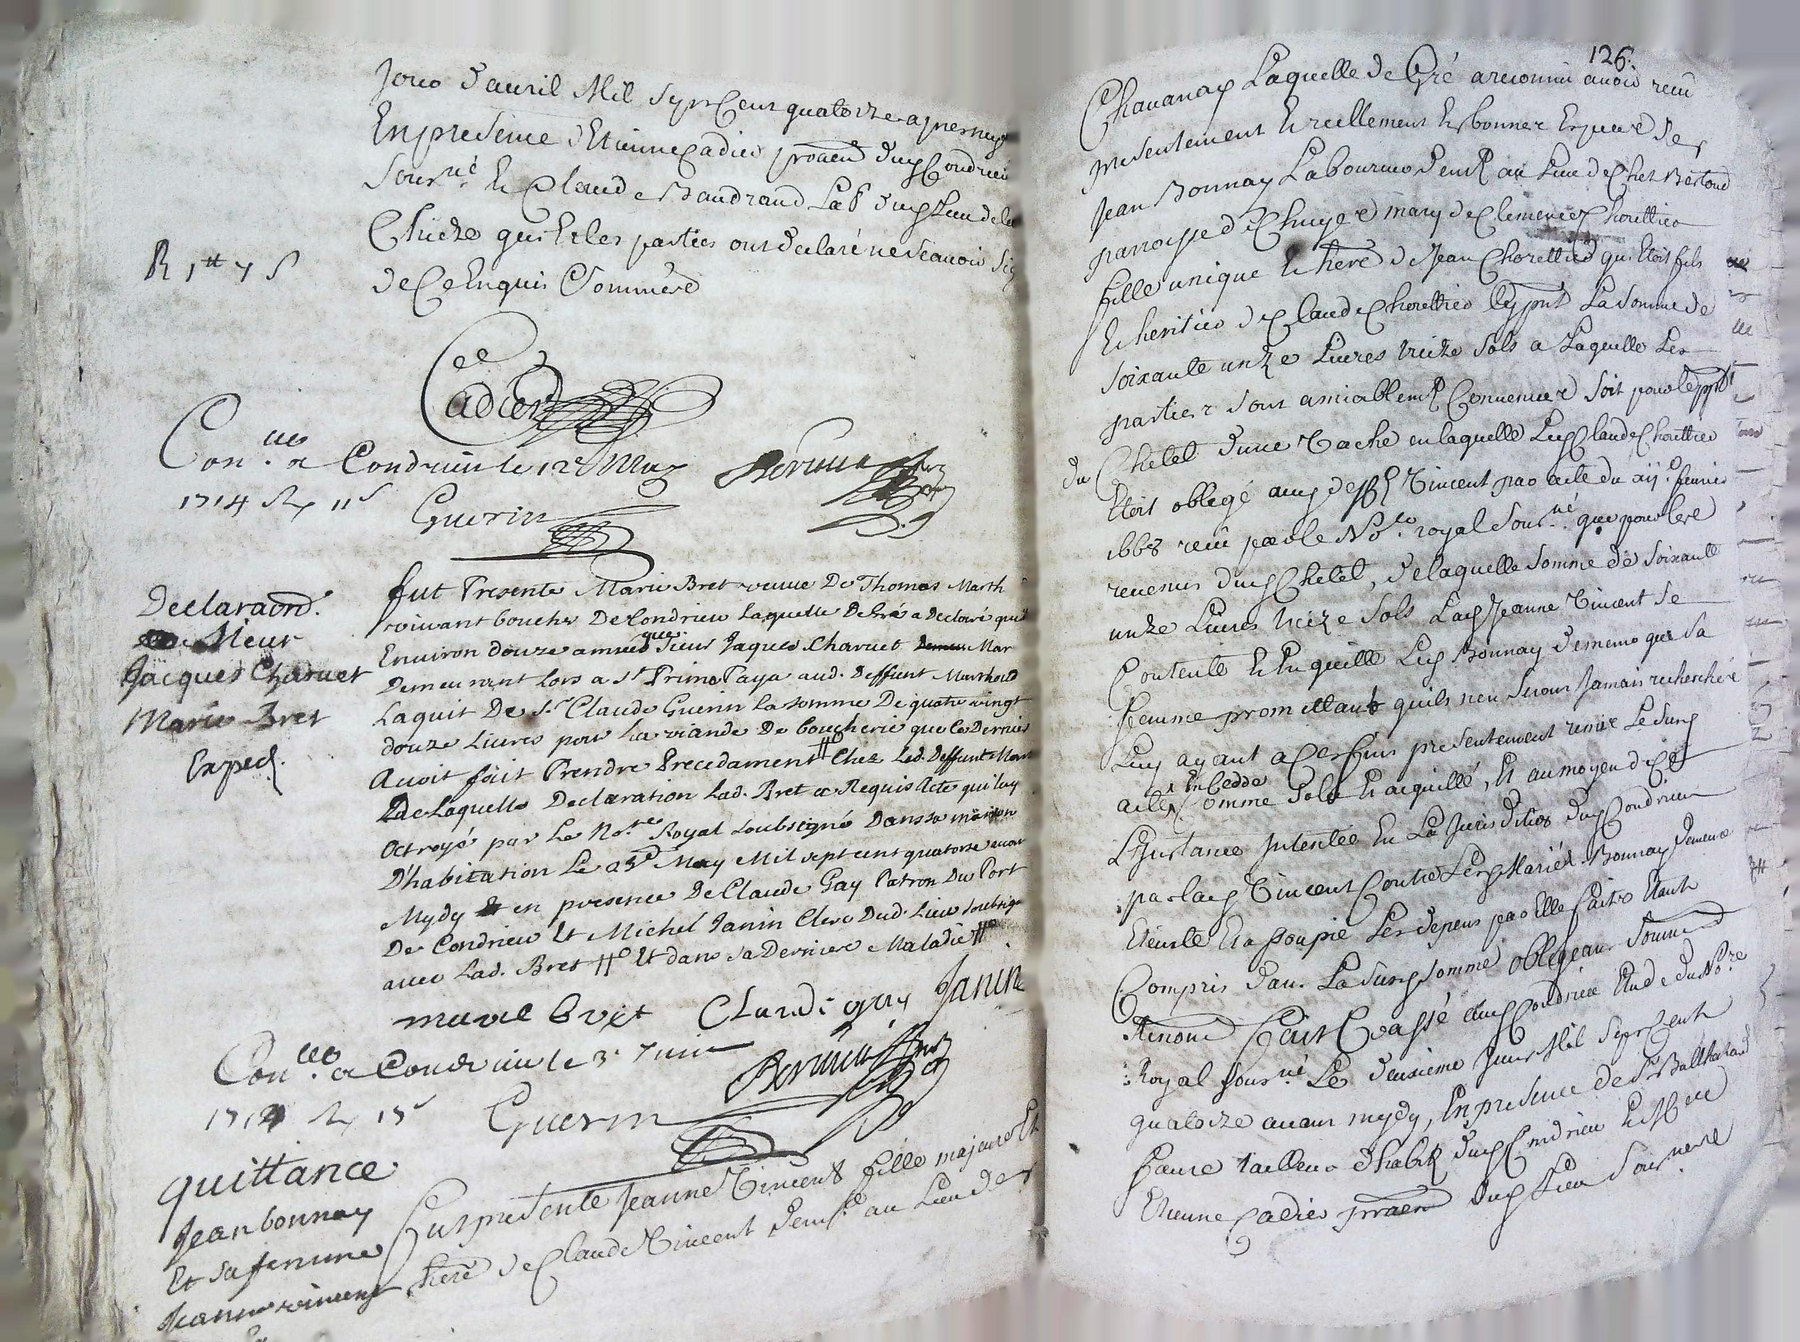 Jour d'avril Mil sept Cent quatorze apres
En presence d'Etienne Cadier dud Condrieu
Sousné Et Claude Baudrand Lab dud Lieu de la
Chieze qui Et les parties ont declaré ne scavoir
de Ce Enquis Sommère
R 1tt 7 s
Cadier
Con.lle a Condrieu le 12e May
1714 11s
Guerin
Declaraon.
Sieur
Jacques Charuet
Marie Bret
Exped.
fut Presente Marie Bret veuve De Thomas Marth
vivant boucher De Condrieu Laquelle De Gré a Declaré quil
Environ douze années que Sieur Jaques Charuet Mar
Demeurant Lors a St Prim Paya aud. Deffunt Marthoud
Laquit De Sr Claude Guerin La somme De quatre vingt
douze Livres pour La viande De boucherie que Ce Dernier
Avoit fait Prendre Precedament # Chez Led. Deffunt Mart
De Laquelle Declaration Lad. Bret a Requis Acte qui luy
Octroyé par Le No.re Royal soubsigné Dans sa maison
D'habitation Le May Mil sept cent quatorse avant
Mydy et en presence De Claude Gay Patron Du Port
De Condrieu Et Michel Janin Clerc Dud. Lieu soubsigé
avec Lad. Bret #º Et dans sa Derniere Maladie #º
marie bret Claude gay Janin
Con.lle a Condrieu le 3e Juin
1714 15s
Guerin
quittance
Jean bonnay
Et sa femme
Jeanne vincent
Fut presente Jeanne Vincent fille majeure Et
here de Claude Vincent demt au Lieu de
126.
Chavanay Laquelle de Gré a reconnu avoir receu
presentement Et reellement Et bonnes Especes de
Jean Bonnay Laboureur demt au Lieu de Chez Bertoud
parroisse de Chuyer mary de Clemence Chorettier
fille unique Et here de Jean Chorettier qui Etoit fils
Et heritier de Claude Chorettier La somme de
soixante unze Livres treize sols a Laquelle Les
parties sont amiablemt Convenues soit pour le pnt
du Chetel d'une Vache en laquelle Led Claude Chorettier
Etoit obligé aud deff Vincent par acte du fevrier
1668 receu par le No.re royal sousné que pour les
revenus dud Chetel, de laquelle somme de soixante
unze Livres treize sols Lad Jeanne Vincent se
Contente Et En quitte Led Bonnay de meme que sa
femme promettant qu'ils n'en seront Jamais recherchés
Luy ayant a Ces fins presentement remis Le susd
acte En Cedde Comme solu Et acquitté, Et au moyen de Ce
L'Instance Intentée En La Jurisdition dud Condrieu
par lad Vincent Contre Lesd Mariés Bonnay demeure
Eteinte Et assoupie Les depens par Elle faits Etant
Compris dans La susd somme obligeant
Renon Fait Et passé aud Condrieu Etude du No.re
Royal sousné Le deuxieme Juin Mil Sept Cent
quatorze avant mydy, En presence de Sr Balthazard
faure tailleur d'habit dud Condrieu Et Mre
Etienne Cadier dud Lieu sousné